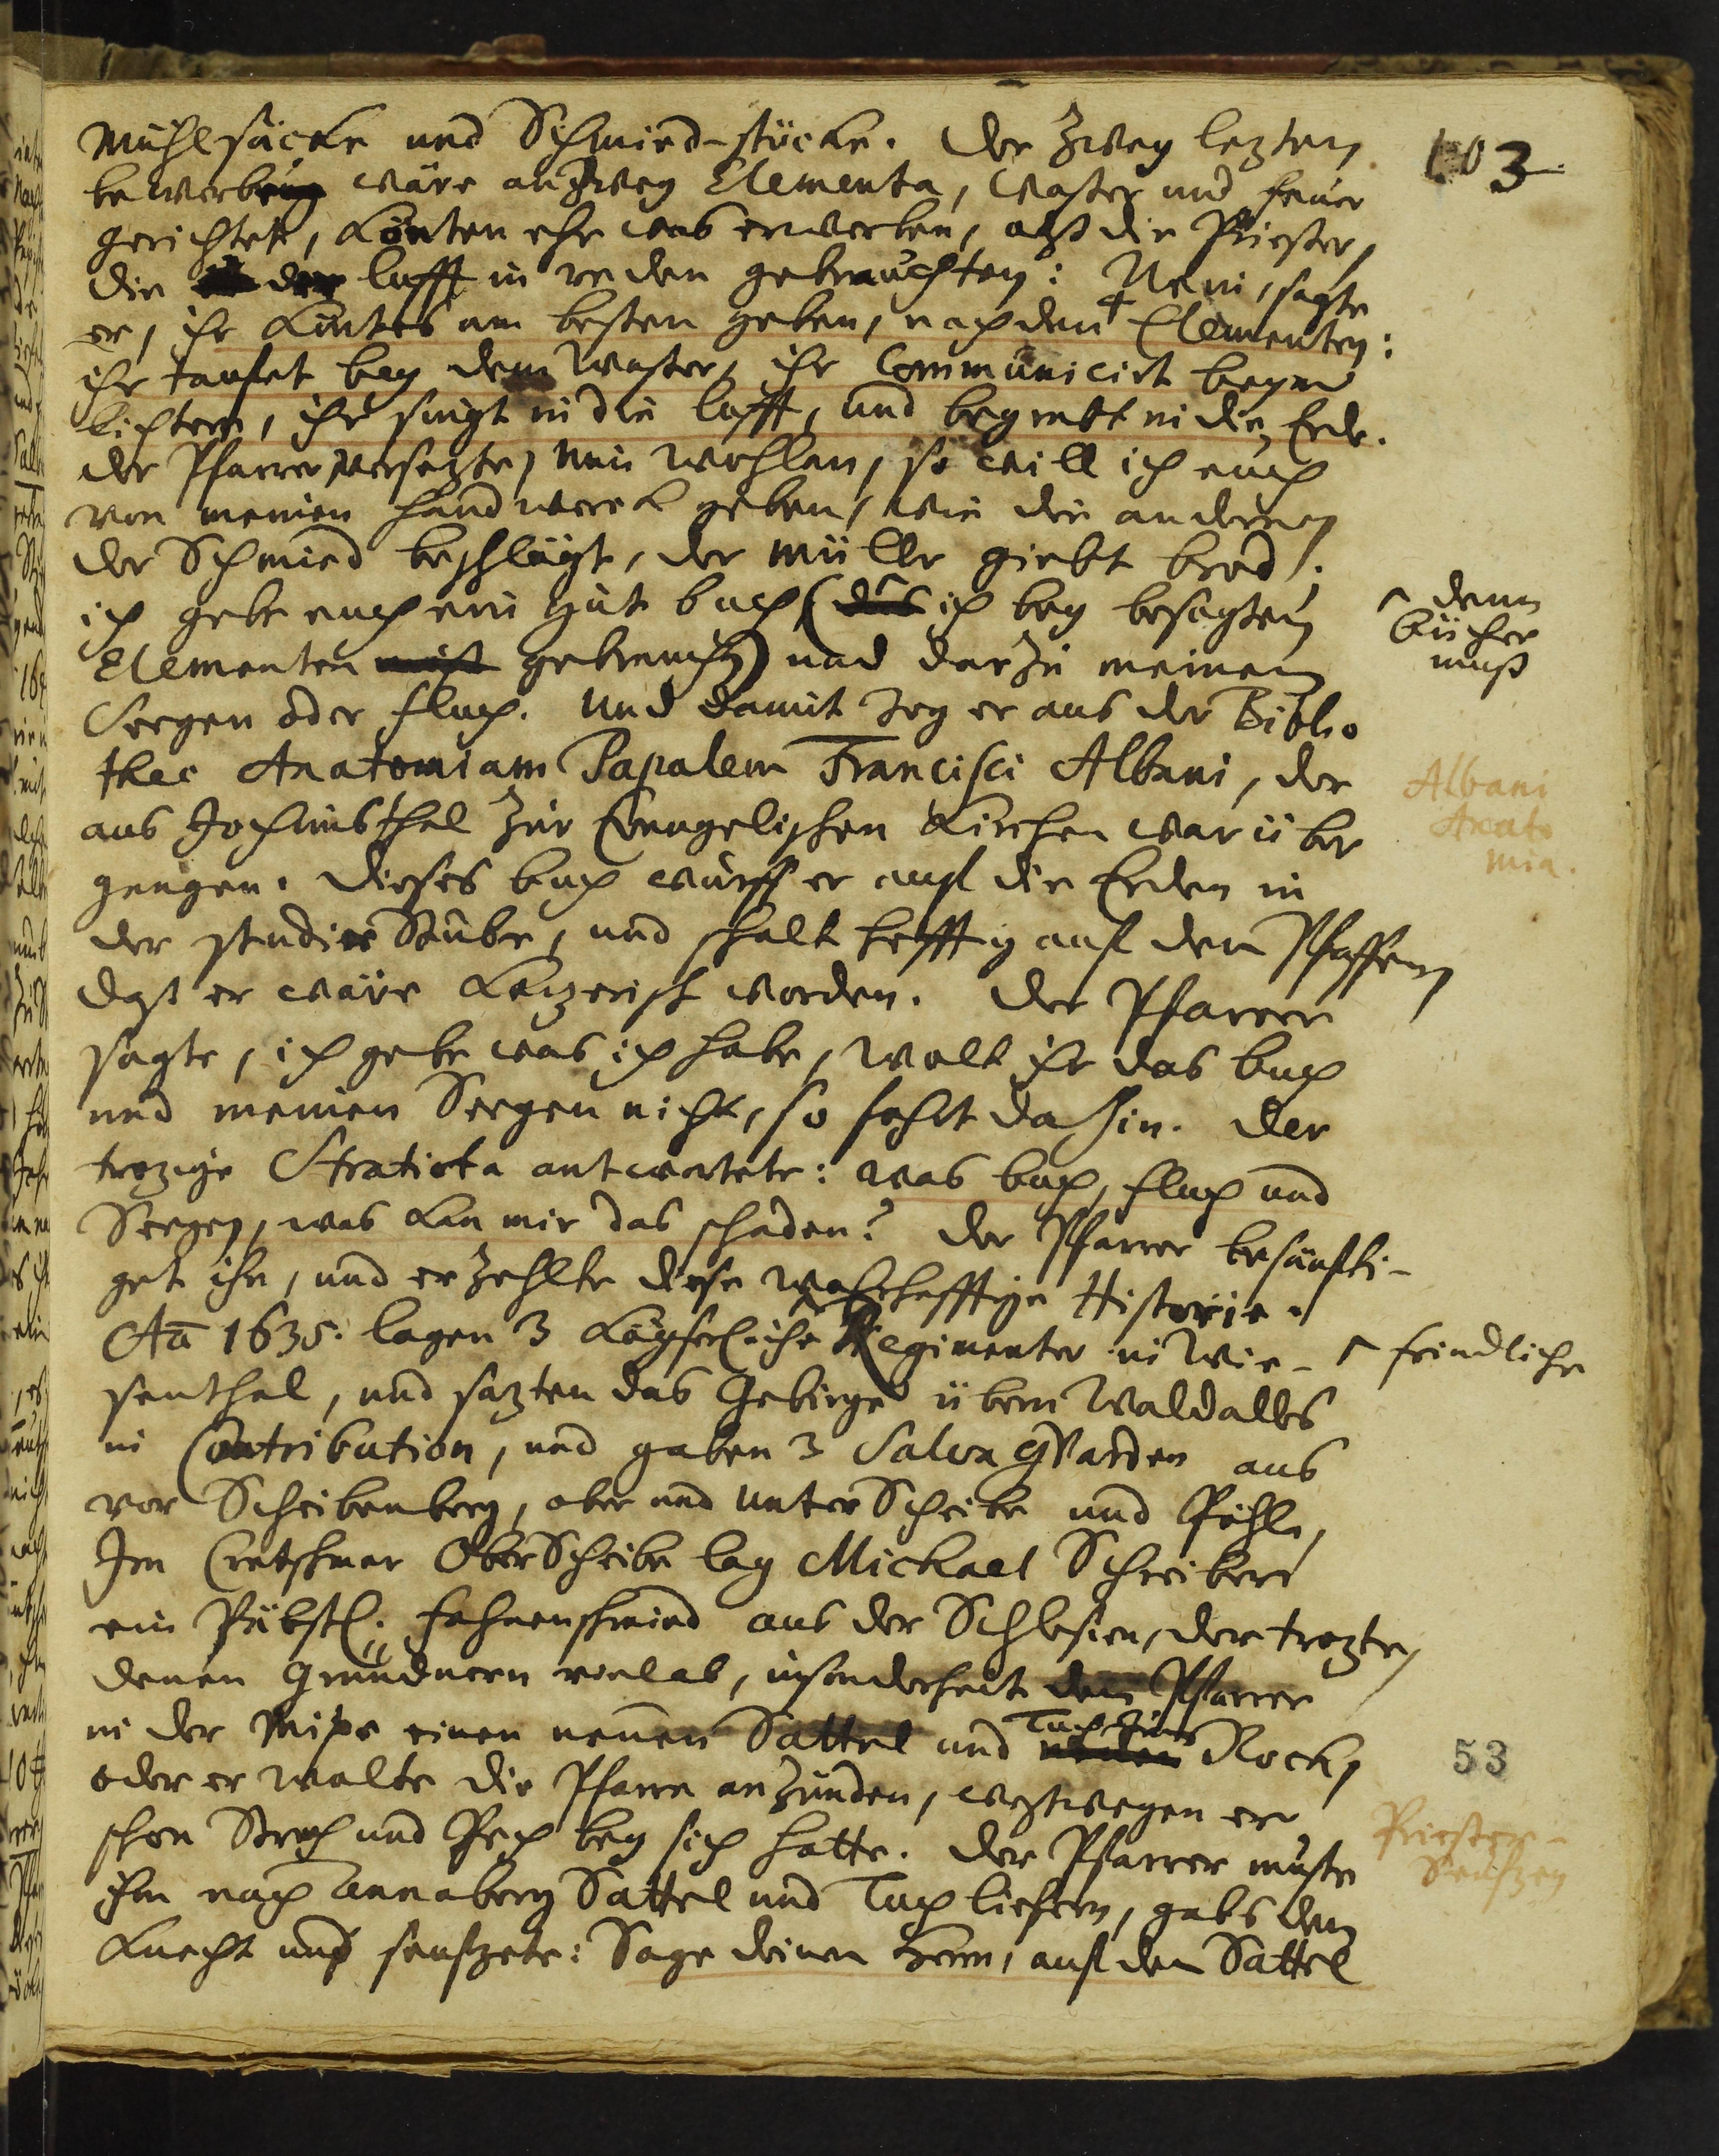 103
Mühlsäcke und Schmied-stöcke. Der zwey lezten
bewerbung wäre an zwey Elementa, Waßer und feuer
gerichtet, könten ehr was erwerben, alß die Priester,
die der lufft in reden gebrauchten: Nein, sagte
er, ihr köntes am besten geben, nach den 4 Elementen:
ihr taufet bey dem Waßer, ihr Communicirt beym
lichtern, ihr singt in die lufft, und begrabt in die Erde.
der Pfarrer versetzte, nun wohlan, so will ich euch
von meinen handwerck geben, wie die anderen
der Schmied beschlägt, der Müller giebt brod;
ich gebe euch ein gut buch (das ich bey besagten
^ denn
bücher
muß
Elementen muß gebrauchen) und darzu meinen
Seegen oder fluch. Und damit zog er aus der Biblio
thec Anatomiam Papalem Francisci Albani, der
Albani
Anato
mia.
aus Jochimsthal zur Evangelischen Kirchen war über
gangen. Dieses buch wurff er auf die Erden in
der studier Stube, und schalt hefftig auf den Pfaffen
daß er wäre kezerisch worden. Der Pfarrer
sagte, ich gebe was ich habe, wolt ihr das buch
und meinen Seegen nicht, so fahrt dahin. Der
trozige Stratiota antwortete: was buch, fluch und
Seegen, was kan mir das schaden? Der Pfarrer besänfti-
get ihn, und erzehlte diese wahrhafftige Historie.
Aō 1635. lagen 3 Käyserliche Regimenter in Wie-
^ feindliche
senthal, und sazten das Gebirge überm Wald alles
in Contribution, und gaben 3 Salva Gvarden aus
vor Scheibenberg, ober und unter Scheibe und Pöhle,
Im Cretschmar OberScheibe lag Michael Schreiber
ein Päbstl. fahnenschmied aus der Schlesien, der trozte
denen Gründnern viel ab, insonderheit dem Pfarrer
in der einen neuen Sattel und Tuch zum Rock,
53
oder er wolte die Pfarre anzünden, weßwegen er
schon Stroh und Pech bey sich hatte. Der Pfarrer muste
Priester-
Seufzen
ihm nach Annaberg Sattel und Tuch liefern, gabs dem
Knecht und seufzete: Sage deinem Herrn, auf den Sattel